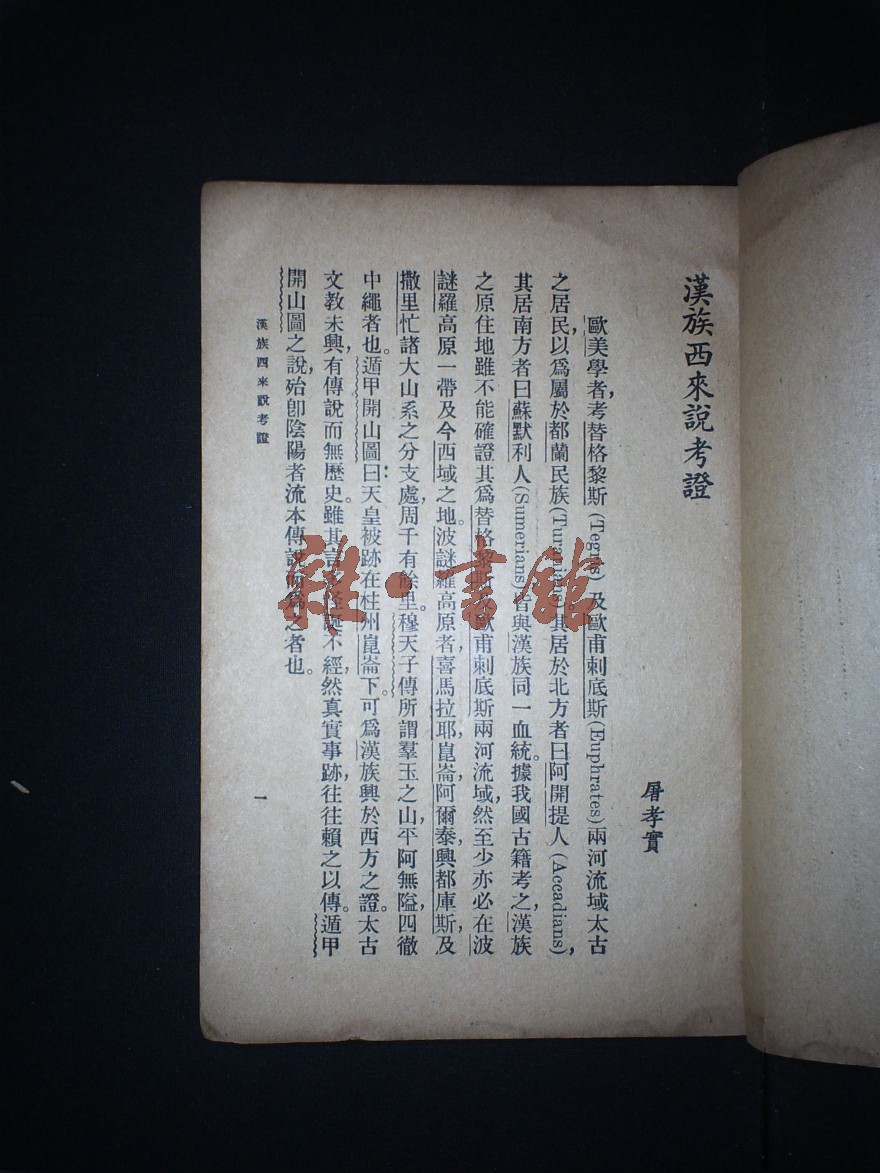 漢族西來說考證
屠孝實
歐美學者，考替格黎斯(Tegris)及歐甫刺底斯(Euphrates)兩河流域太古
之居民，以爲屬於都蘭民族(Turanians)其居於北方者曰阿開提人(Accadians)，
其居南方者曰蘇默利人(Sumerians)皆與漢族同一血統。據我國古籍考之，漢族
之原住地雖不能確證其爲替格黎斯及歐甫刺底斯兩河流域，然至少亦必在波
謎羅高原一帶及今西域之地。波謎羅高原者，喜馬拉耶，崑崙，阿爾泰，興都庫斯，及
撒里忙諸大山系之分支處，周千有餘里。穆天子傳所謂羣玉之山平阿無隘，四徹
中繩者也。遁甲開山圖曰：天皇被跡在柱州崑崙下。可爲漢族興於西方之證。太古
文教未興，有傳說而無歷史。雖其言多怪誕不經，然真實事跡，往往賴之以傳。遁甲
開山圖之說，殆卽陰陽者流本傳說而爲之者也。
漢族西來說考證
一
雜·書館